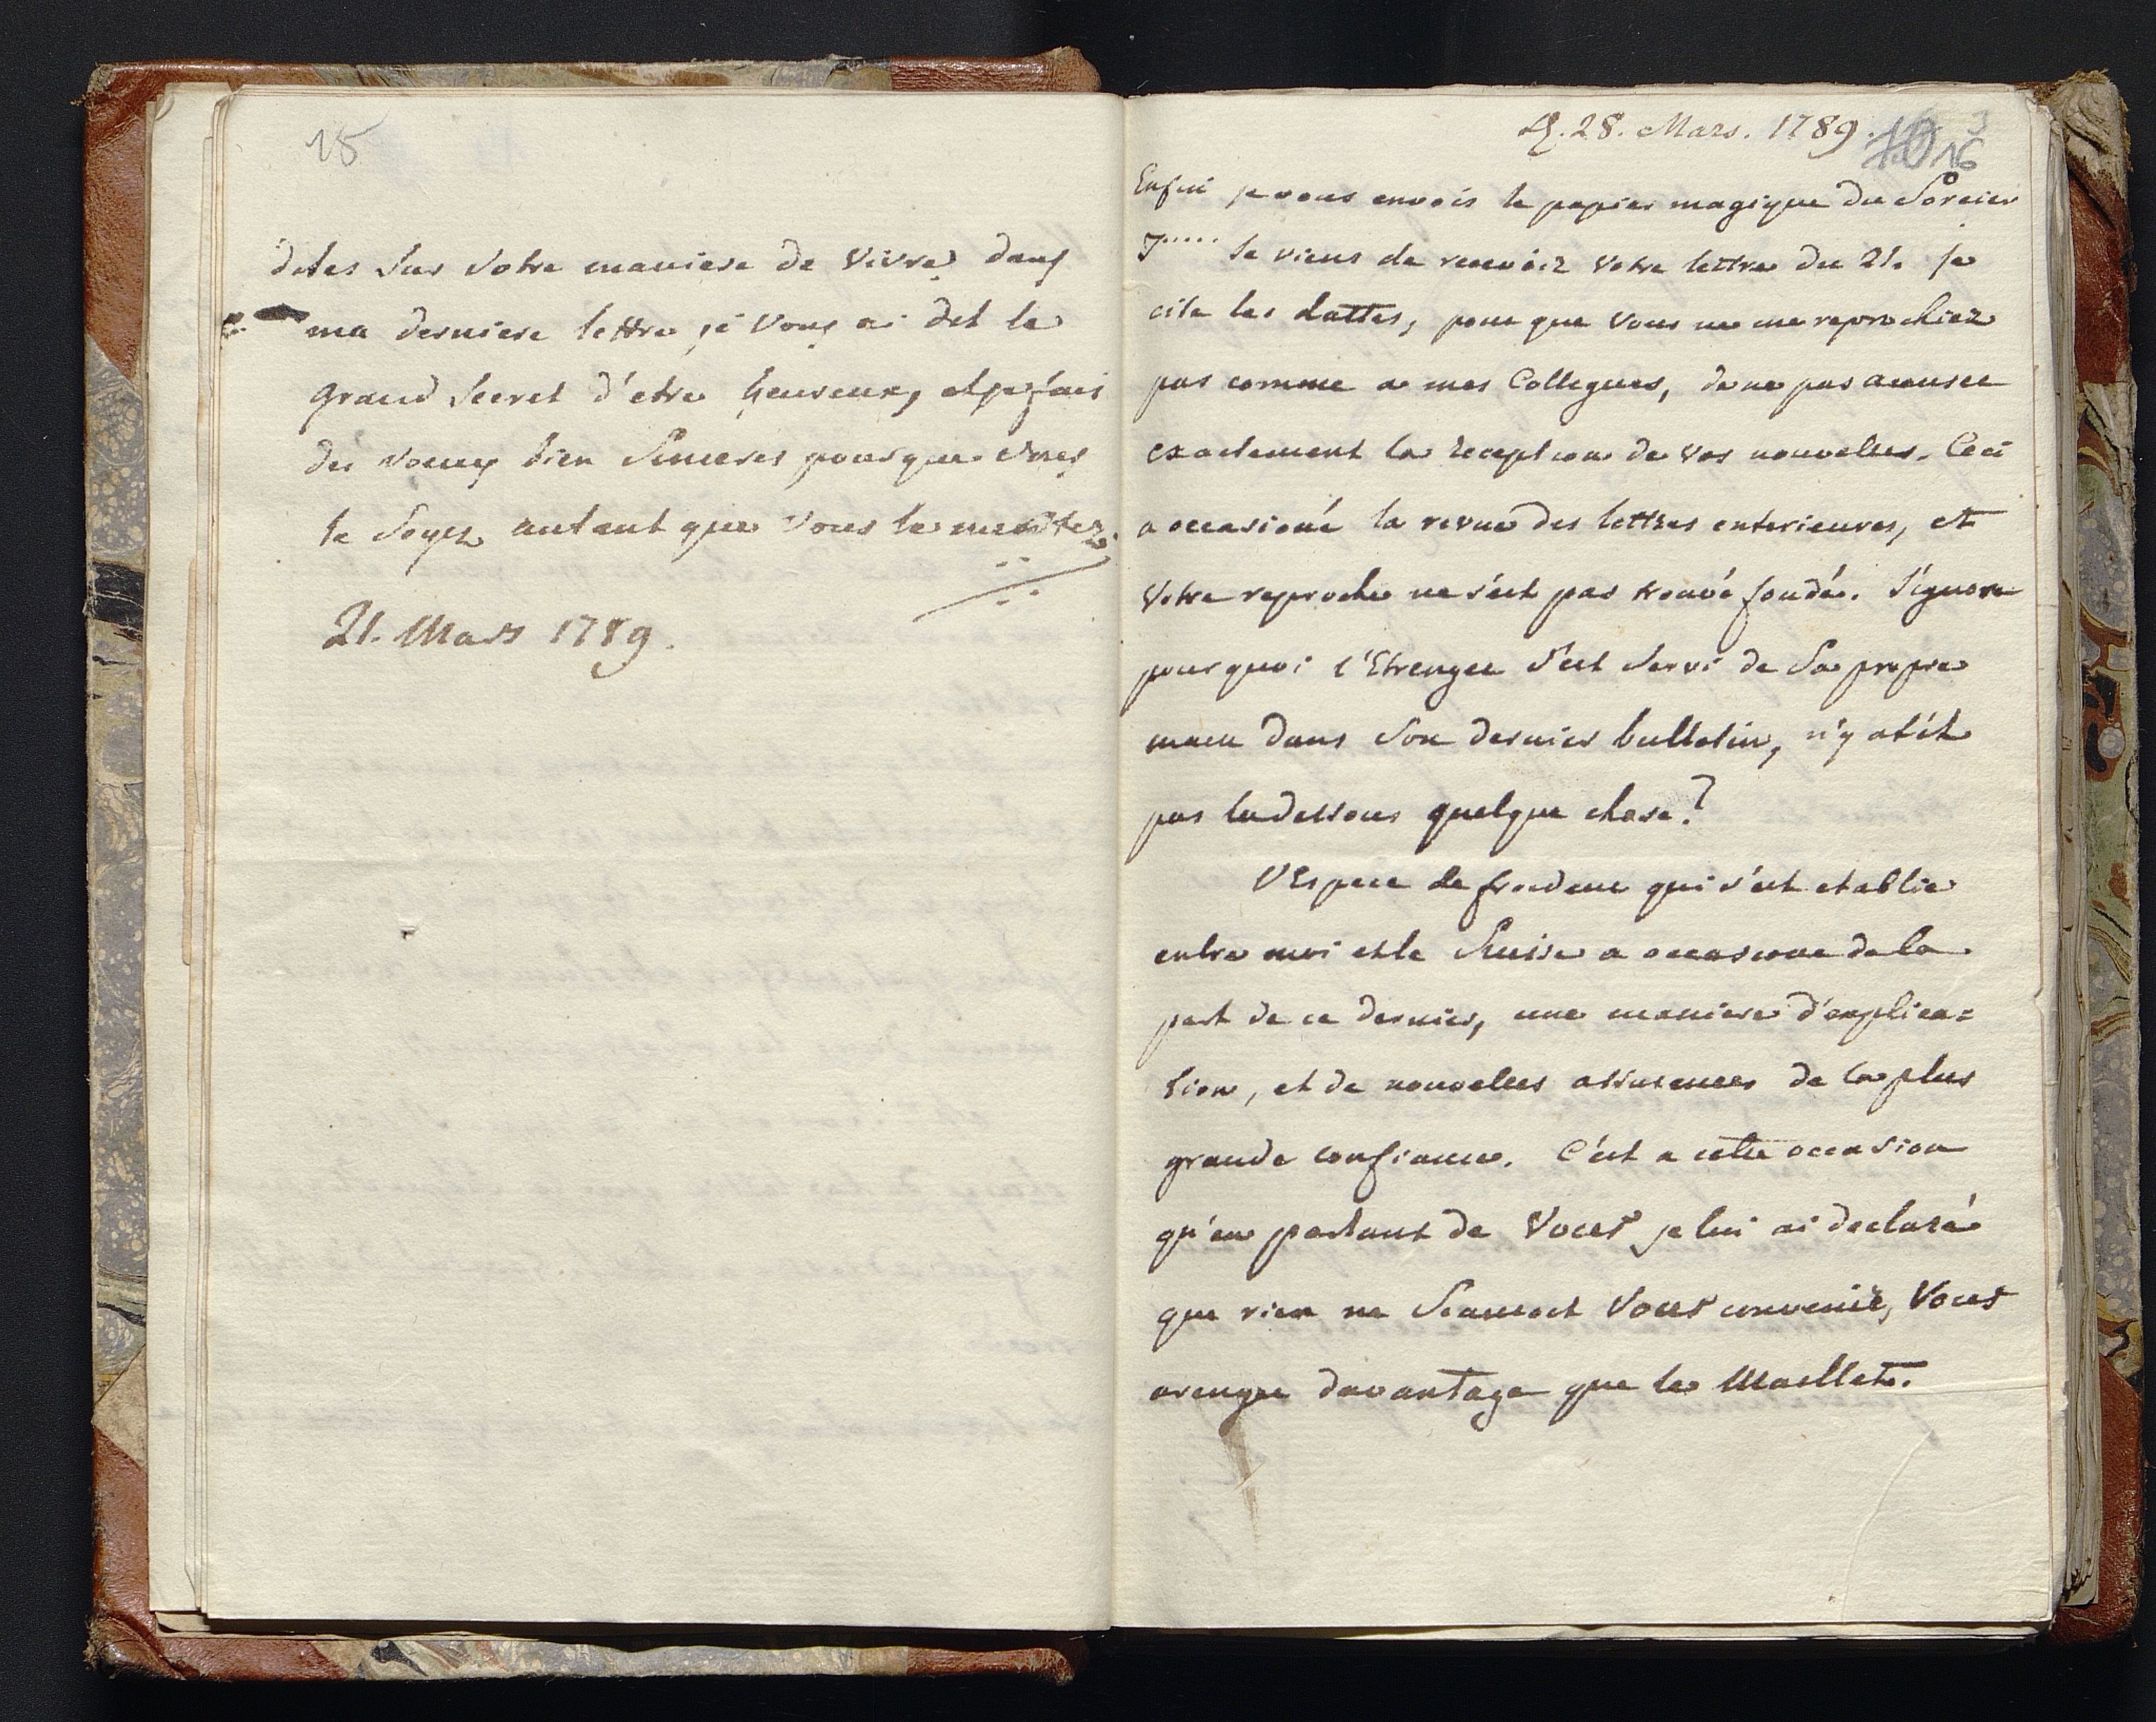 15
dites sur votre maniere de vivre dans
ma derniere lettre je vous ai dit le
grand secret d'etre heureux, et je fais
des voeux bien sinceres pour que vous
le soyez autant que vous le meritez.
21. Mars 1789.
28. Mars. 1789.
16
Enfin je vous envois le papier magique du Sorcier
J..... Je viens de recevoir votre lettre du 21. je
cite les dattes, pour que vous ne me reprochiez
pas comme a mes Collegues, de ne pas accuser
exactement la reception de vos nouvelles. Ceci
a occasioné la revue des lettres enterieures, et
votre reproche ne s'est pas trouvé fondée. J'ignore
pourquoi l'Etrenger s'est servi de Sa propre
main dans son dernier bulletin, n'y at'il
pas ladessous quelque chose?
l'Espece de froideur qui s'est etablie
entre moi et le Suisse a occasione de la
part de ce dernier, une maniere d'explica=
tion, et de nouvelles assurences de la plus
grande confiance. C'est a cette occasion
qu'en parlant de Vous je lui ai declaré
que rien ne Scauroit Vous convenir, Vous
arenger davantage que le Maillet.